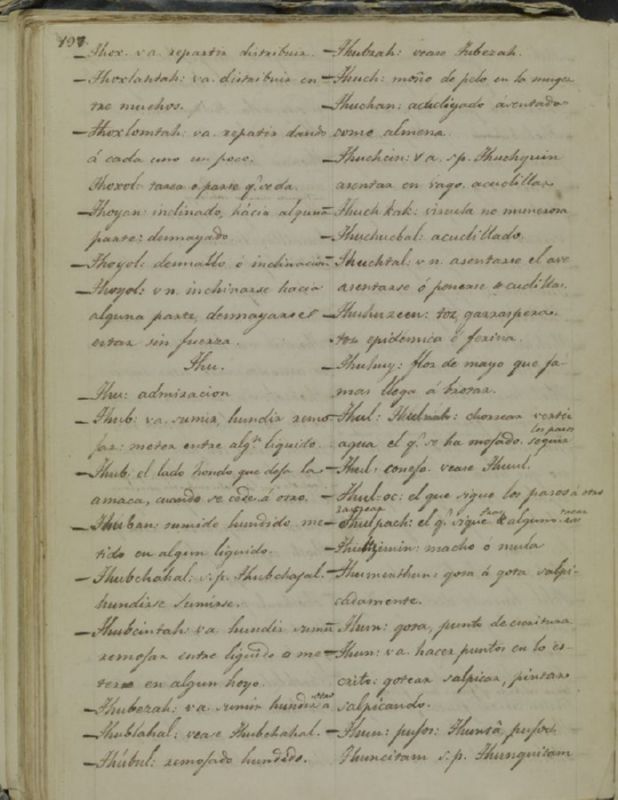 197.
Thox. va. repartir distribuir.
Thoxlantah: va. distribuir en-
tre muchos.
Thoxlomtah: va. repatir dando
á cada uno un poco.
Thoxol: tarea o parte q.e se da.
Thoyan: inclinado, hácia alguna
parte: desmayado.
Thoyol: desmallo, o inclinacion
Thoyol: vn. inchinarse hacia
alguna parte, desmayarse
estar sin fuerza.
Thu.
Thu: admiracion
Thub: va. sumir, hundir remo-
jar: meter entre alg.n liquido.
Thub. el lado hondo que deja la
amaca, cuando se cede á otro.
Thuban: sumido hundido me-
tido en algun liquido.
Thubchahal: s.p. Thubchajal.
hundirse sumirse.
Thubcintah: va. hundir sumir
remojar entre liquido o me-
terse en algun hoyo.
Thubezah: va. sumir hundir á otro
Thublahal: vease Thubchahal.
Thúbul: remojado hundido.
Thubzah: vease Tubezah.
Thuch: moño de pelo en la muger
Thuchan: acucliyado asentado
como almena.
Thuchcin: va. s.p. Thuchquin
asentar en vago. acuclillar
Thuch kak: viruela no numerosa
Thuchucbal: acuclillado.
Thuchtal: vn. asentarse el ave
asentarse ó ponerse acuclillas.
Thuhuzeen: toz, garraspera,
toz epidemica ó ferina.
Thuhuy: flor de mayo que ja-
mas llega á brotar.
Thul: Thulnah: chorrear vertir
agua el q.e se ha mojado. seguir los pasos
Thul: conejo. vease Thuul.
Thul-oc: el que sigue los pasos á otro
Thulpach: el q.e sigue tras alguno.
Thultzimin: macho ó mula
Thumenthun: gota á gota salpi-
cadamente.
Thun: gota, punto de escritura
Thun: va. hacer puntos en lo es-
crito: gotear salpicar, pintar
salpicando.
Thun: pujos: Thunta pujar.
Thuncitam s.p. Thunquitam